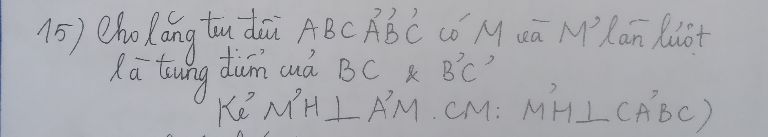 15) Cho lăng trụ đều ABC A'B'C' có M và M' lần lượt
là trung điểm của BC & B'C'
Kẻ M'H ⊥ A'M. CM: M'H ⊥ (A'BC)